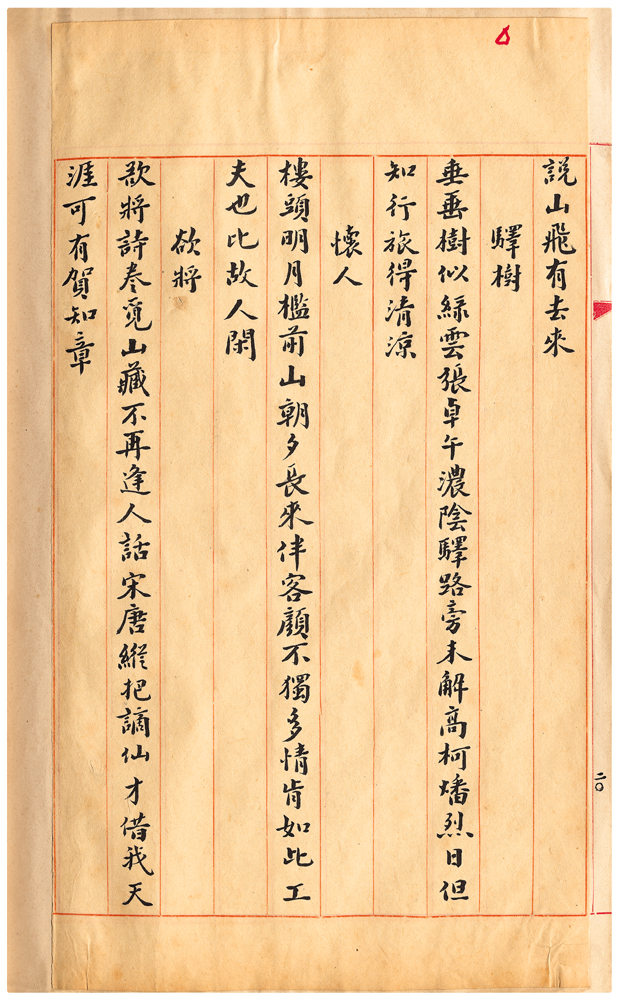 説山飛有去來
驛樹
垂垂樹似綠雲張卓午濃陰驛路旁未解高柯燔烈日但
知行旅得清涼
懷人
樓頭明月檻前山朝夕長來伴客顏不獨多情肯如此工
夫也比故人閑
欲將
欲將詩卷覓山藏不再逢人話宋唐縱把謫仙才借我天
涯可有賀知章
二〇